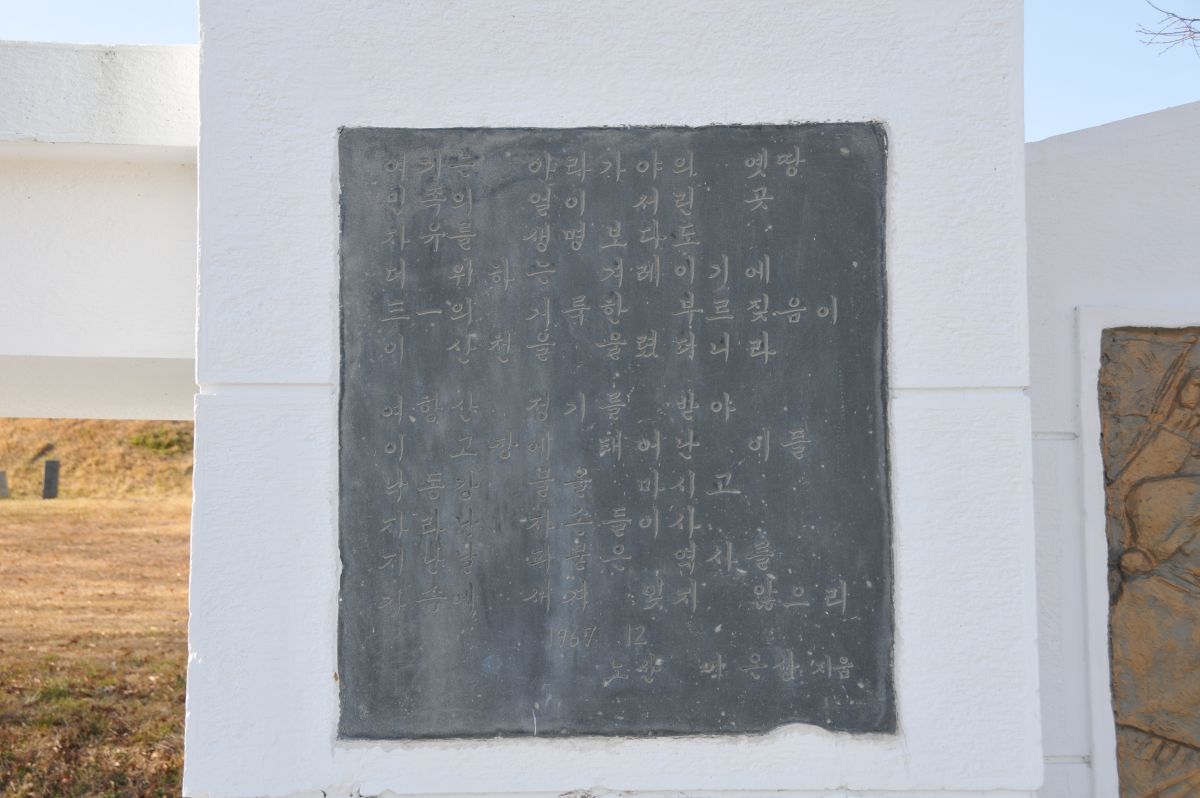 여기는 아라가야의 옛땅
민족의 얼이 서린 곳
자유를 생명보다도
더 위하는 겨레이기에
三一의 거룩한 부르짖음이
이 산천을 울렸더니라
여항산 정기를 받아
이 고장에 태어난 이들
낙동강 물을 마시고
자라난 자손들이사
기난날 파묻은 역사를
가슴에 새겨 잊지 않으리
1967 12
노산 은 지음